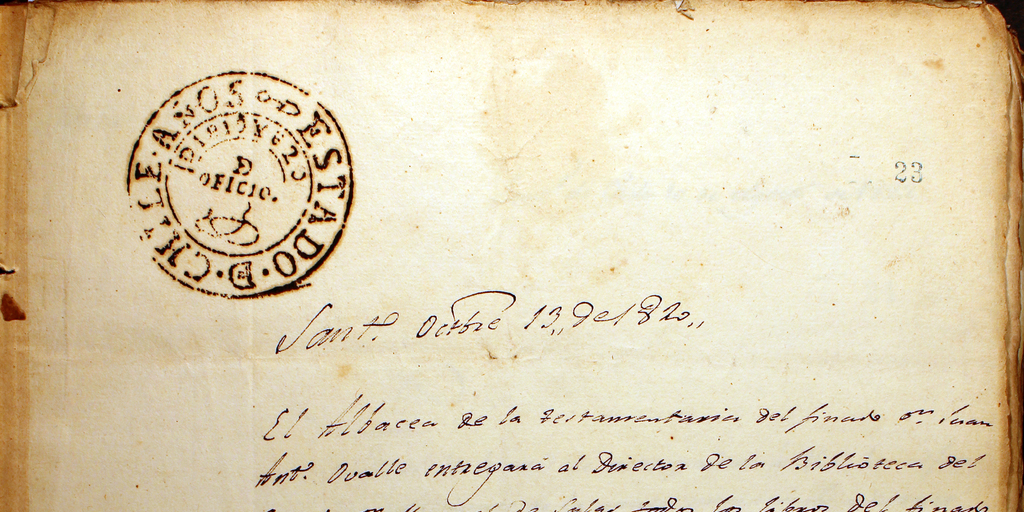 ESTADO·D·CHILE·AÑOS D
D 1819 Y 820
D
OFICIO.
23
Sant.º Octbre 13,, de 1820,,
El Albacea de la testamentaria del finado Dn. Juan
Ant.º Ovalle entregará al Director de la Biblioteca del
de Salas todos los libros del finado